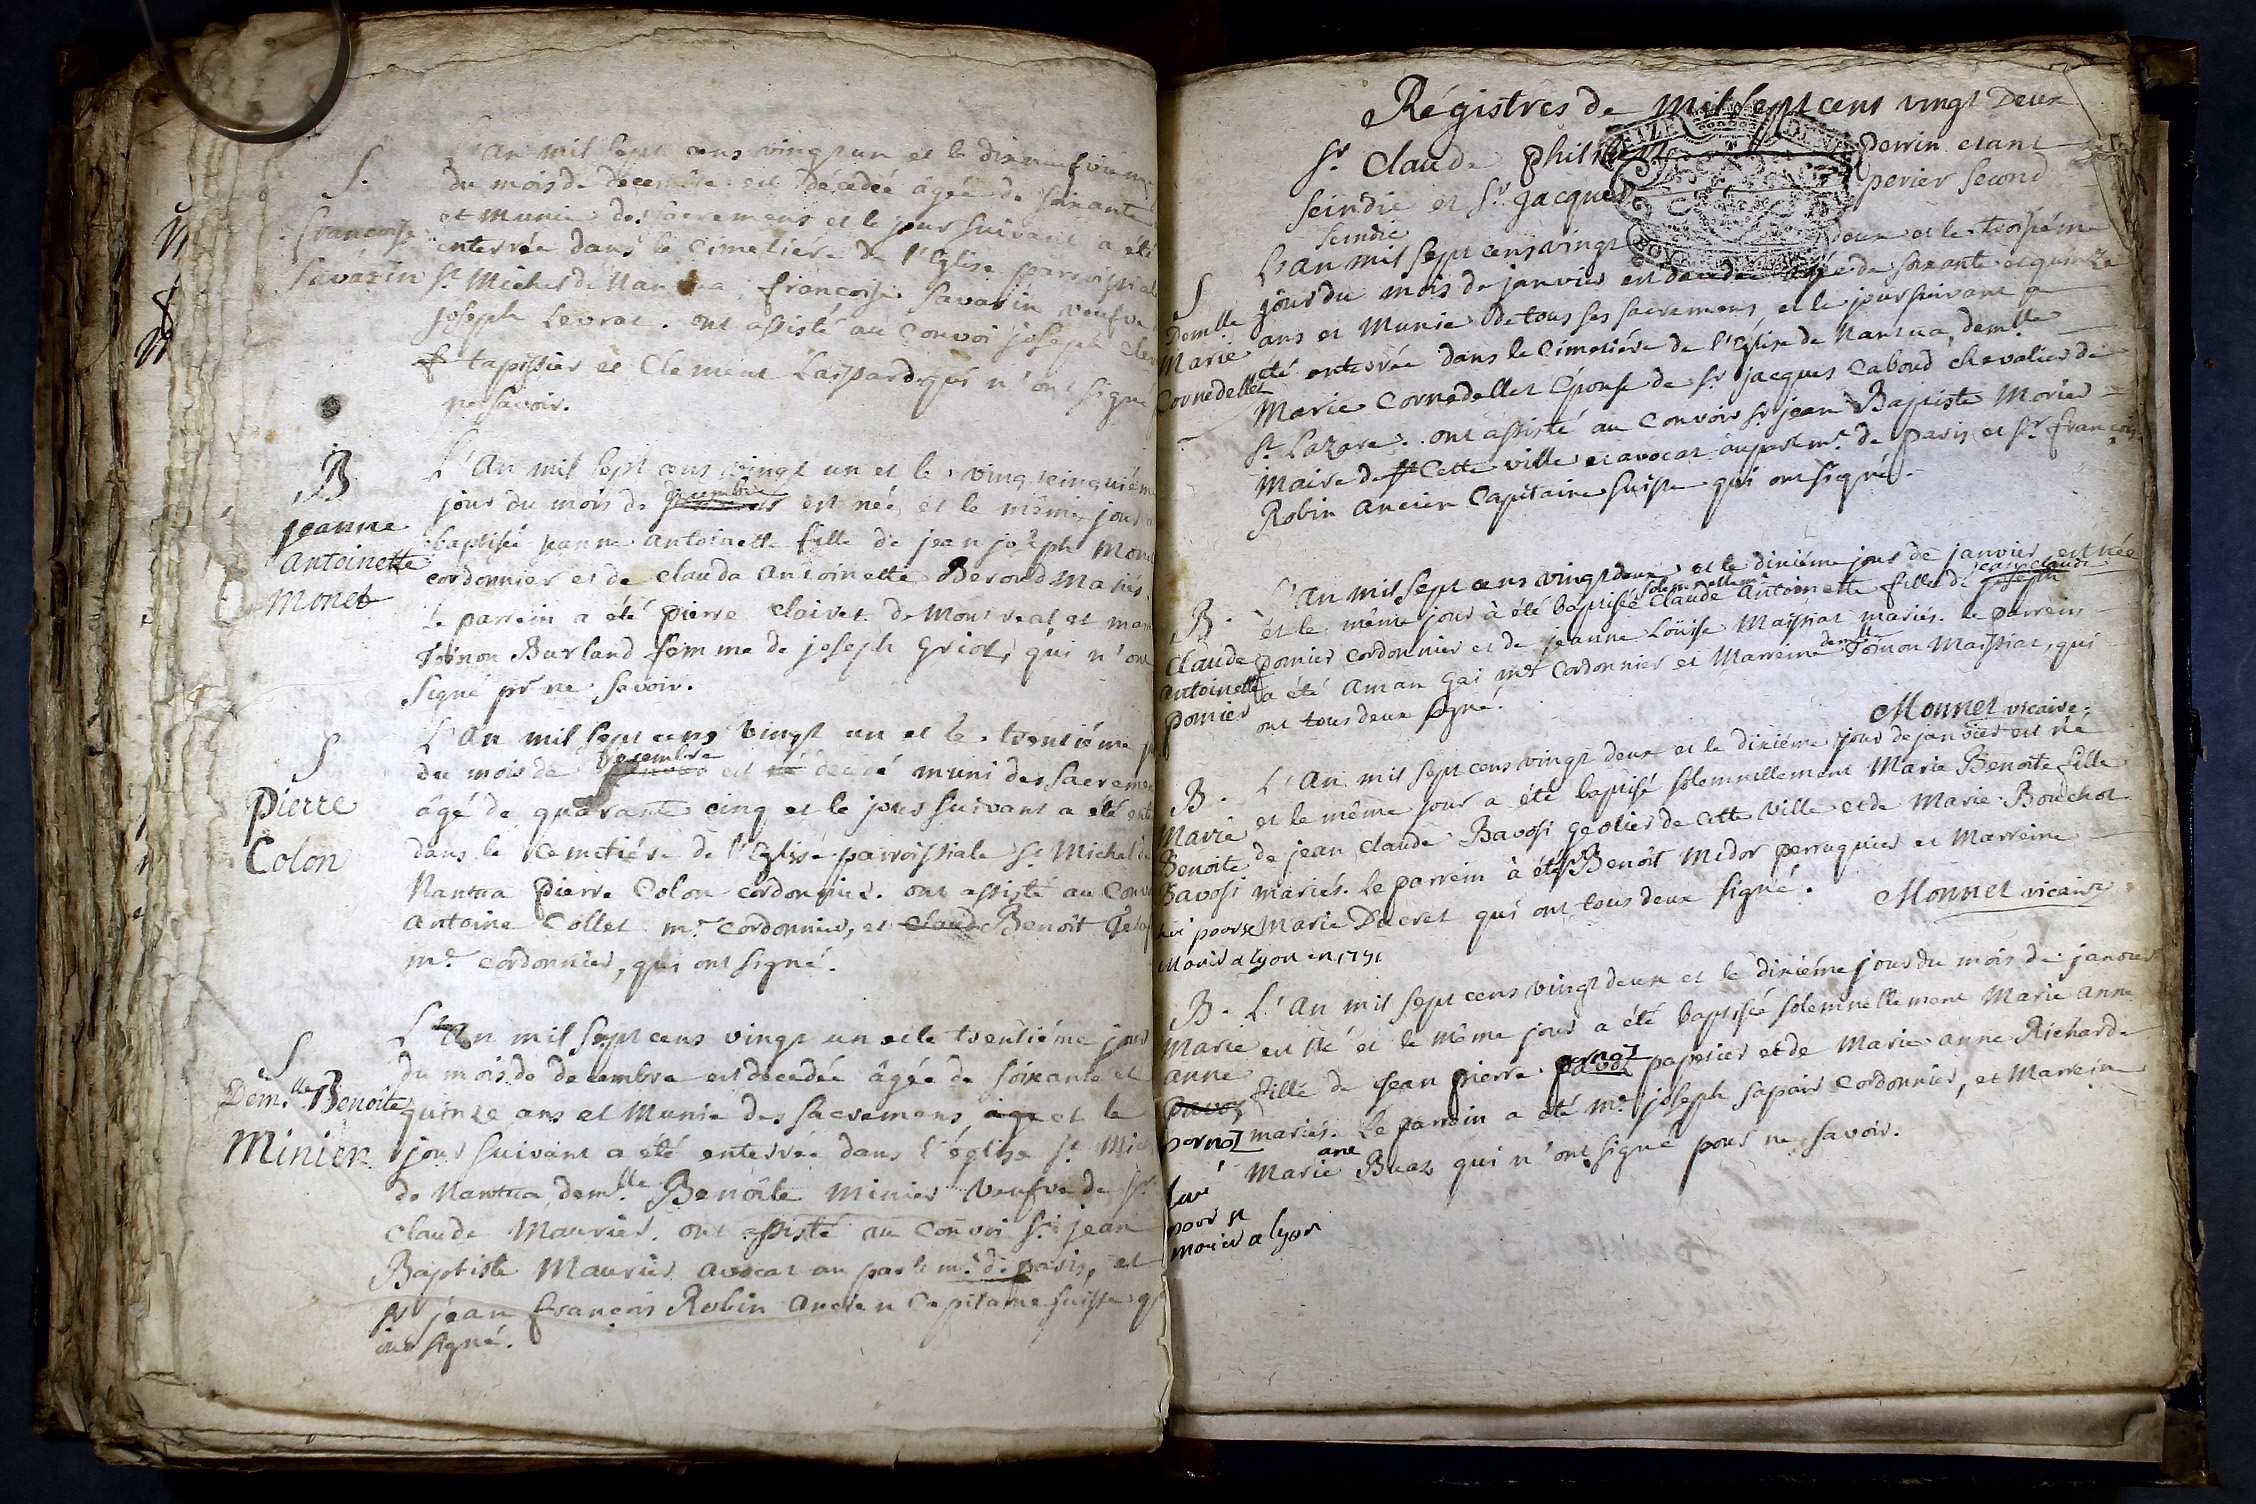 L'An mil sept cens vingt un et le dixneufvieme
S. du mois de décembre est décédée âgée de soixante
françoise et munie des sacremens et le jour suivant a été
Savarin enterrée dans le Cimetiére de l'Eglise parroissial
St Michel de Nantua, françoise Savarin veufve
joseph Levrat. ont assisté au Convoi joseph
tapissier et Clement Gaspard qui n'ont signé
pr savoir.
B L'An mil sept cens vingt un et le vingtcinquiém
jeanne jour du mois de decembre est née et le même jour
Antoinette baptisée jeanne Antoinette fille de jean joseph Mone
Monet cordonnier et de clauda Antoinette Berond Mariés.
Le parrein a été pierre clairet de Montreal et mar
Toinon Burland femme de joseph Griot, qui n'ont
signé pr ne savoir.
S L'An mil sept cens vingt un et le trentiéme j
du mois de janvier decembre est né decedé muni des sacremen
Pierre âgé de quarante cinq et le jour suivant a été ente
Colon dans le cemetiére de l'Eglise parroissiale St Michel de
Nantua Pierre Colon cordonnier. ont assisté au Convo
Antoine Collet me Cordonnier, et Claude Benoît
me cordonnier, qui ont signé.
S L'An mil sept cens vingt un et le trentiéme jour
du mois de decembre est decedée âgée de soixante et
Demlle Benoîte quinze ans et Munie des sacremens, age et le
Minier jour suivant a été enterrée dans l'église St Mich
de Nantua demlle Benoîte Minier Veufve de Sr
Claude Maurier. ont assisté au Convoi Sr jean
Baptiste Maurier avocat au parlemt de paris, et
Sr jean françois Robin Ancien Capitaine suisse q
ont signé.
Régistres de Mil sept cens vingt Deux
Sr Claude Perrin etant
Scindic et Sr Jacques perier second
Scindic
L'An mil sept cens vingt deux et le troisiéme
S jour du mois de janvier est decedée âgée de soixante et quinze
Demlle ans et Munie de tous ses sacremens, et le jour suivant a
Marie été enterrée dans le Cimetiére de l'Eglise de Nantua, demlle
Cornedellet Marie Cornedellet Epouse de Sr jacques Caboud chevalier de
St Lazare. ont assisté au Convoir Sr jean Baptiste Morier
Maire de Cette ville et avocat au parlmt de Paris et Sr françois
Robin Ancien Capitaine suisse qui ont signé.
L'An mil sept cens vingt deux et le dixiéme jour de janvier est née
B. et le même jour à été baptisée solemnellemt Claude Antoinette fille de joseph jean claude
Claude pomier cordonnier et de jeanne Loüise Maissiat mariés. le parrein
Antoinette a été Aman Gai me Cordonnier et Marreine demlle Toinon Maissiat, qui
pomier ont tous deux signé.
Monnet vicaire.
B. L'An mil sept cens vingt deux et le dixiéme jour de janvier est né
Marie et le même jour a été baptisé solemnellement Marie Benoite fille
Benoite de jean claude Bavosi geolier de cette ville et de Marie Bouchot
Bavosi mariés. le parrein à été Sr Benoît Midor perruquier et Marreine
pour se Marie Ducret qui ont tous deux signé.
Marier a lyon en 1751
Monnet vicaire
B. L'An mil sept cens vingt deux et le dixiéme jour du mois de janvier
Marie est né et le même jour a été baptisée solemnellement Marie Anne
anne fille de Jean pierre pavoz pernoz papetier et de Marie anne Richarde
pavoz mariés. Le parrein a été me joseph sapair Cordonnier, et Marreine
pernoz Marie ane Buaz qui n'ont signé pour ne savoir.
levé
pour se
marier a lyon